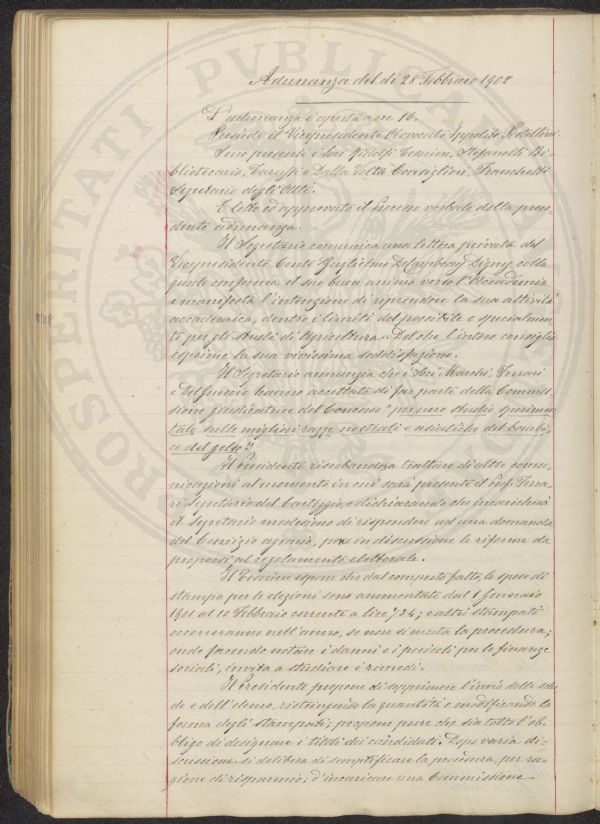 Adunanza del dì 28 Febbraio 1902
L'adunanza è aperta a ore 16.
Presiede il Vicepresidente Avvocato Ippolito
Sono presenti i Soci Ridolfi Tesoriere, Stefanelli Bi-
bliotecario, e Dalla Volta Consiglieri, Franchetti
Segretario degli Atti.
È letto ed approvato il Processo verbale della prece-
dente adunanza.
Il Segretario comunica una lettera privata del
Vicepresidente Conte Guglielmo Digny colla
quale conferma il suo buon animo verso l'Accademia
e manifesta l'intenzione di riprendere la sua attività
accademica, dentro i limiti del possibile e specialmen-
te per gli studi di Agricoltura. Del che l'intero consiglio
esprime la sua vivissima soddisfazione.
Il Segretario annunzia che i Soci Marchi, Ferrari
e Del Guercio hanno accettato di far parte della Commis-
sione giudicatrice del Concorso "per uno studio sperimen-
tale sulle migliori razze nostrali e asiatiche del bombi-
ce del gelso".
Il Presidente riserbandosi a trattare di altre comu-
nicazioni al momento in cui sarà presente il Prof. Ferra-
ri Segretario del Carteggio, e dichiarando che incaricherà
il Segretario medesimo di rispondere ad una domanda
del Comizio agrario, pone in discussione le riforme da
proporsi al regolamento elettorale.
Il Tesoriere espone che dal computo fatto, le spese di
stampa per le elezioni sono ammontate dal 1 Gennaio
1901 al 10 Febbraio corrente a lire 734; e altri stampati
occorreranno nell'anno, se non si muta la procedura;
onde facendo notare i danni e i pericoli per le finanze
sociali, invita a studiare i rimedi.
Il Presidente propone di sopprimere l'invio delle sche-
de e dell'elenco, ristringendo la quantità e modificando la
forma degli stampati; propone pure che sia tolto l'ob-
bligo di designare i titoli dei candidati. Dopo varia di-
scussione si delibera di semplificare la procedura, per ra-
gione di risparmio; d'incaricare una Commissione
PROSPERITATI PVBLICAE